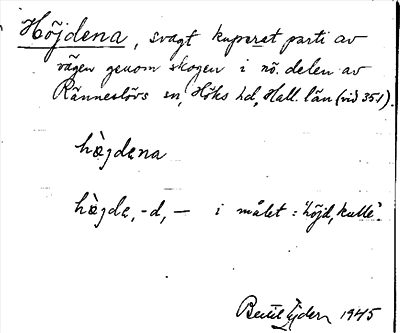 Höjdena, svagt kuperat parti av
vägen genom skogen i nö. delen av
Ränneslövs sn, Höks hd, Hall. län (vid 351).
hæ̀jdena
hæ̀jde, -d, — i målet : 'höjd, kulle'.
Bertil Ejder 1945